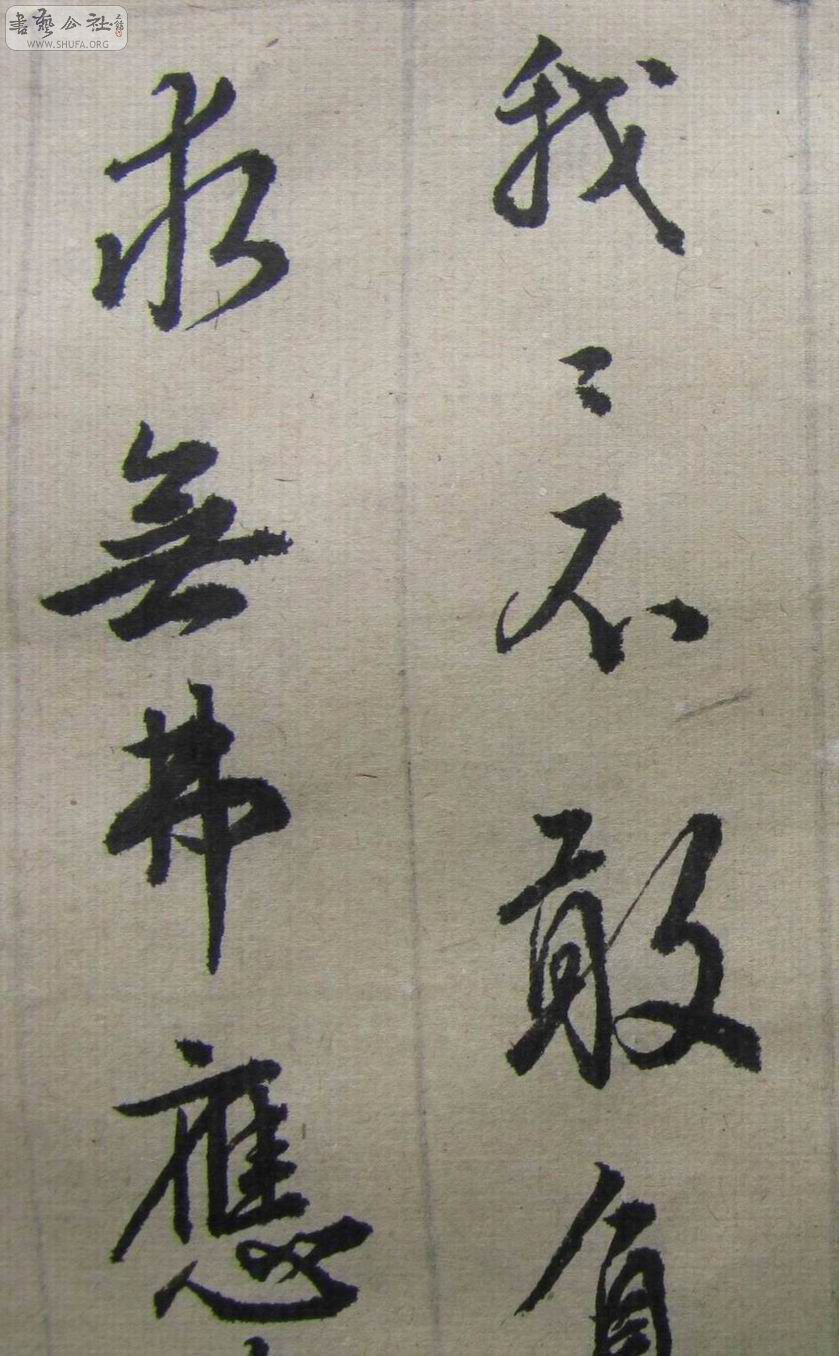 我〻不敢負
求無弗應
書藝公社
WWW.SHUFA.ORG